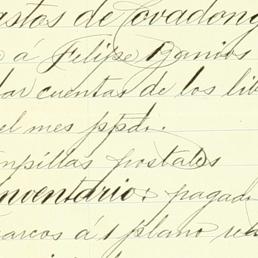 astos de Covadong
á Felipe Barrios
dar cuentas de los lib
el mes ppdo.
mpillas postales
nventario: pagad
arcos á 1 plano